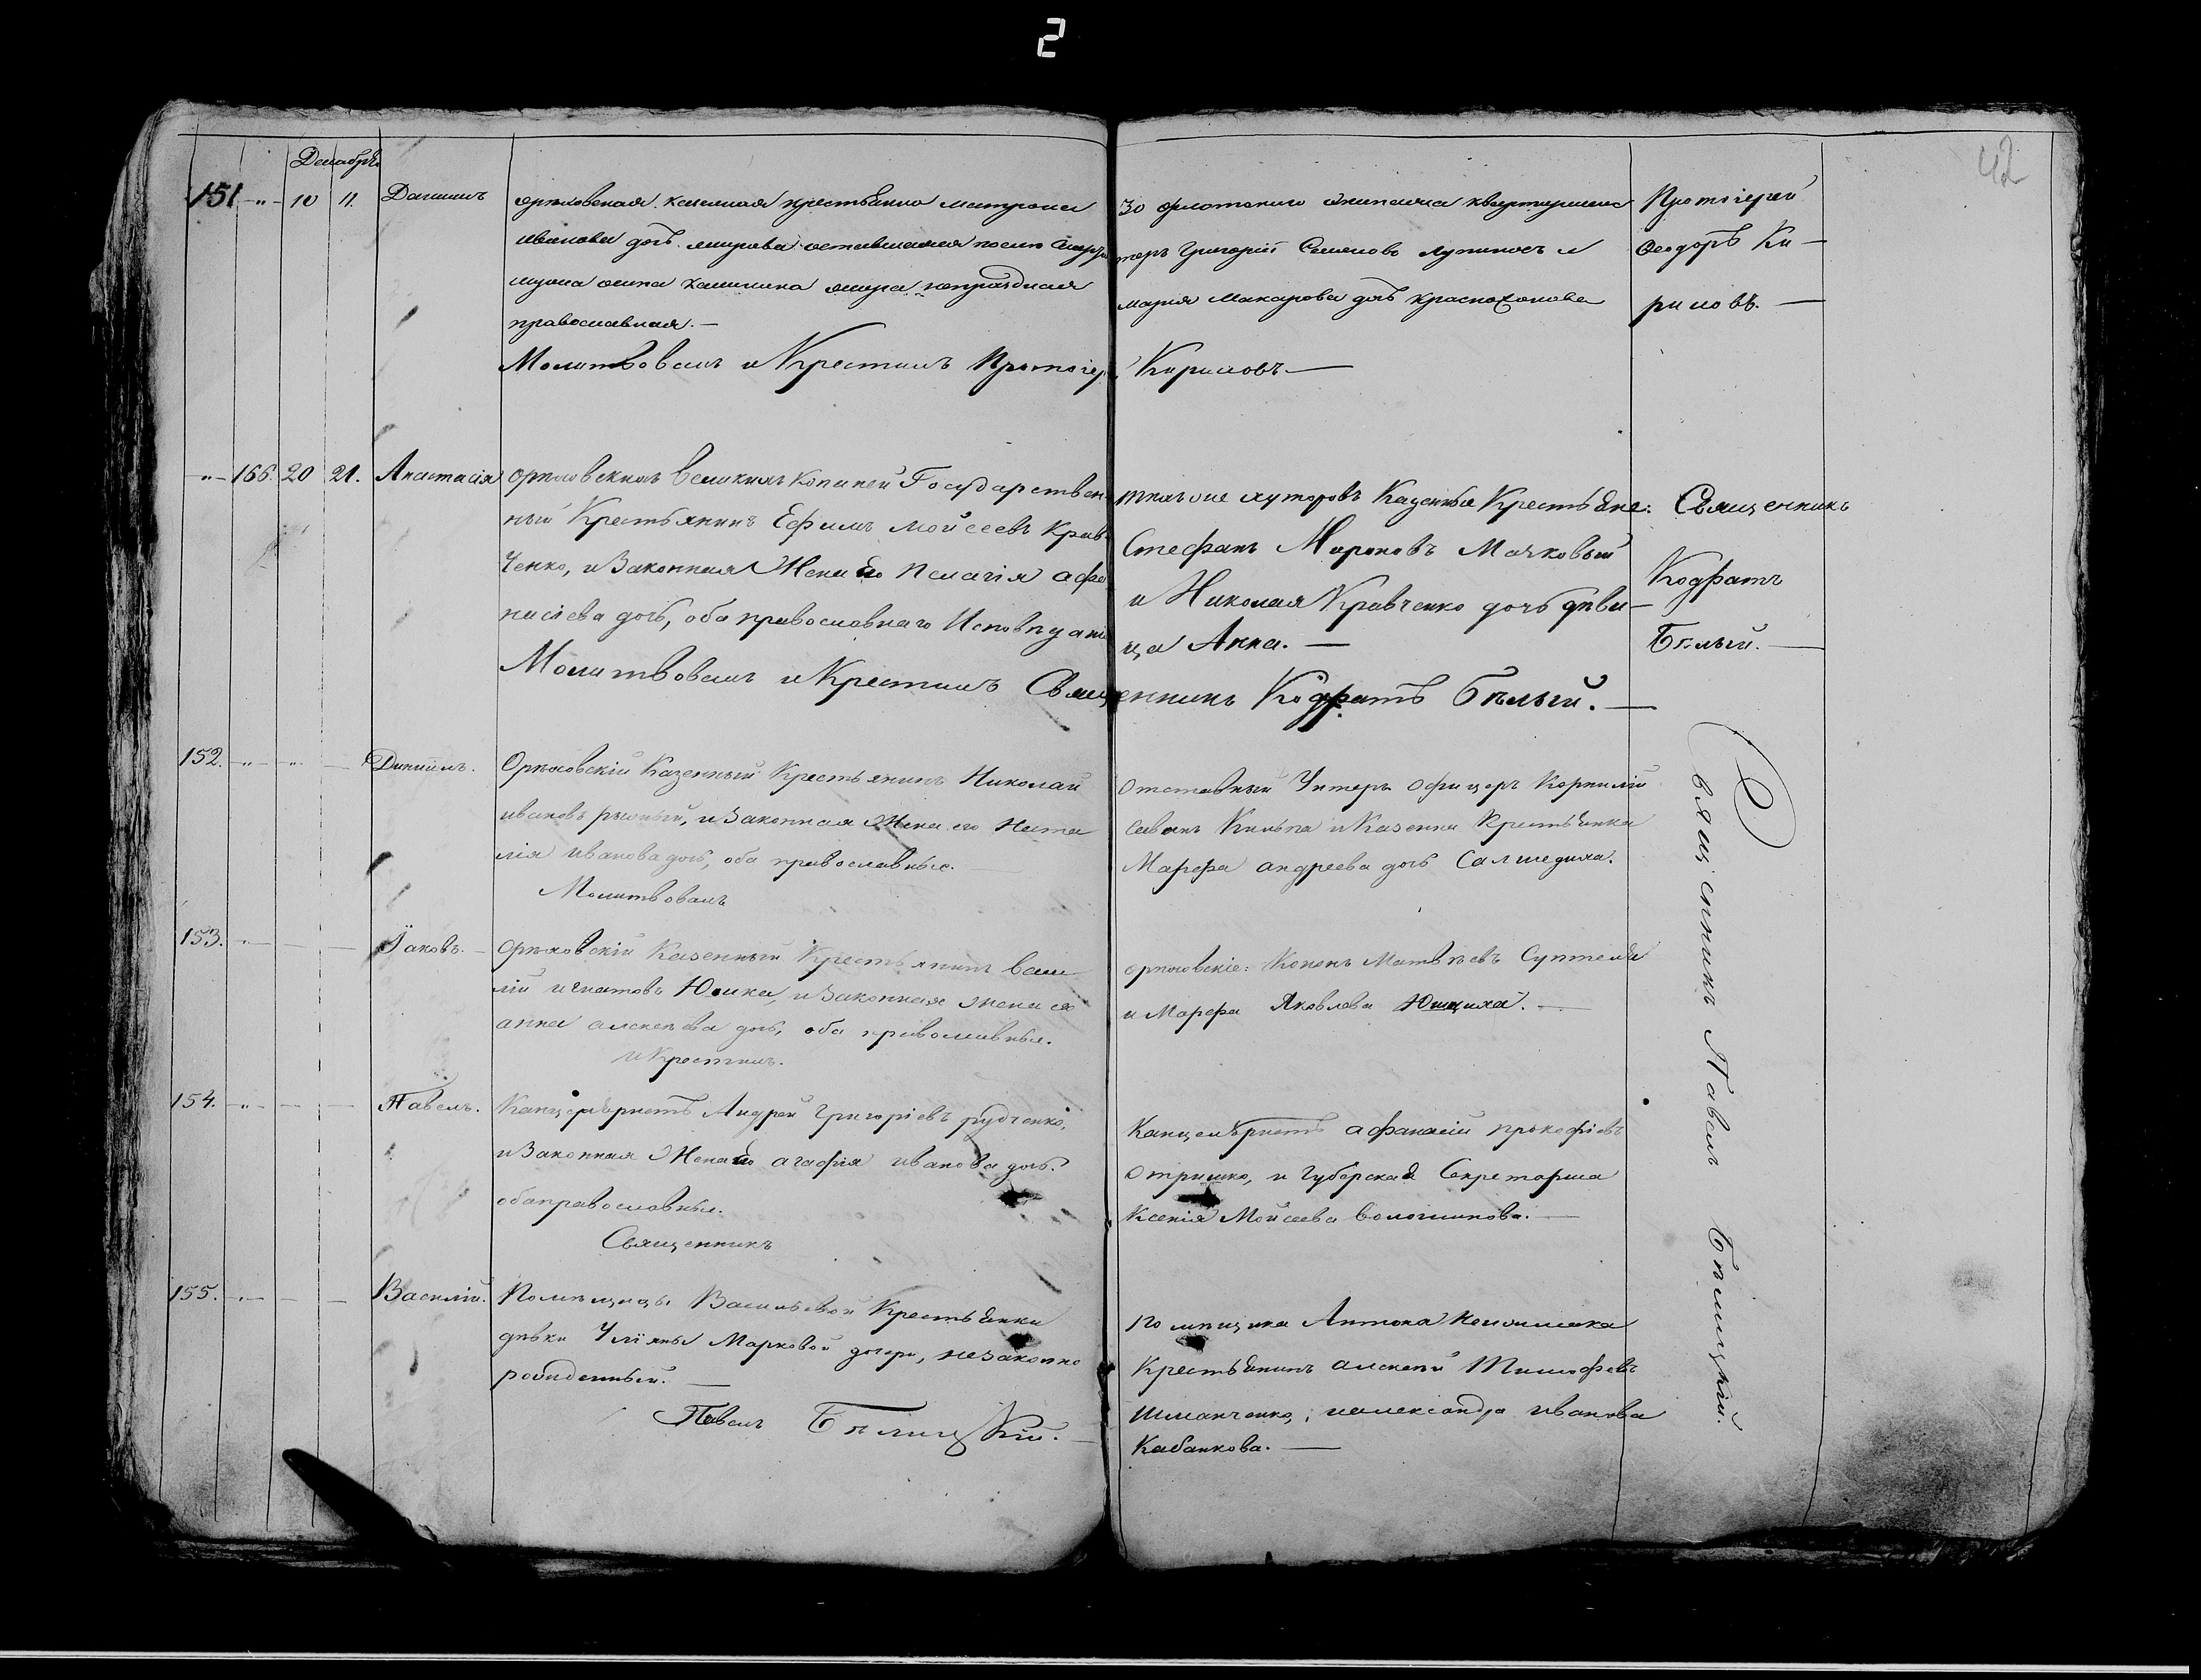 2
42
Декабрь
151 " 10 11. Даниилъ
орѣховская казенная крестьянка матрона
иванова дочь якирова оставшаяся после смерти
мужа осипа калинина непраздная
православная. —
Молитвовалъ и Крестилъ Протоіерей Кириловъ —
30 флотскаго экипажа квартирмис
теръ Григорій Семеновъ Лупиносъ и
марія Макарова дочь краснохонова
Протоіерей
Ѳеодоръ Ки —
риловъ. —
" 166. 20 21. Анастасія
орѣховскихъ Великихъ Копаней Государствен
ный Крестьянинъ Ефимъ Мойсеевъ Крав
ченко, и Законная Жена его Пелагія афа
насіева дочь, оба православнаго Исповѣданія
Молитвовалъ и Крестилъ Священникъ Кодратъ Бѣлый. —
хуторовъ Казенные Крестьяне:
Стефанъ Мироновъ Мачковый
и Николая Кравченко дочь дѣви —
ца Анна. —
Священникъ
Кодратъ
Бѣлый. —
152. " " — Даниилъ.
Орѣховскій Казенный Крестьянинъ Николай
ивановъ рыжый, и Законная Жена его Ната
лія иванова дочь, оба православные.
Молитвовалъ
отставный Унтеръ офицеръ Корнилій
савинъ Кильпа и Казенна Крестьянка
Марфа андреева дочь
153. " — — Іаковъ. —
Орѣховскій Казенный Крестьянинъ васи
лій игнатовъ Юшка, и Законная жена его
анна алексѣева дочь, оба православные.
и Крестилъ.
орѣховскіе: Кононъ Матвѣевъ Суптеля
и Марфа Яковлева Ющиха. —
154. " — — Павелъ.
Канцеляристъ Андрей Григоріевъ рудченко,
и Законная Жена его агафія иванова дочь.
оба православные.
Священникъ
Канцеляристъ афанасій прокофіевъ
отришко, и Губерская Секретарша
Ксенія Мойсеева волошинова. —
155. " — — Василій.
Помѣщицы Васильевой Крестьянки
дѣвки Уліяны Марковой дочери, незаконно
рожденный. —
Павелъ Бѣлицкій. —
помѣщика Антона
Крестьянинъ алексѣй Тимофеевъ
Шманченко, и александра иванова
Кабанкова. —
Священникъ Павелъ Бѣлицкій.